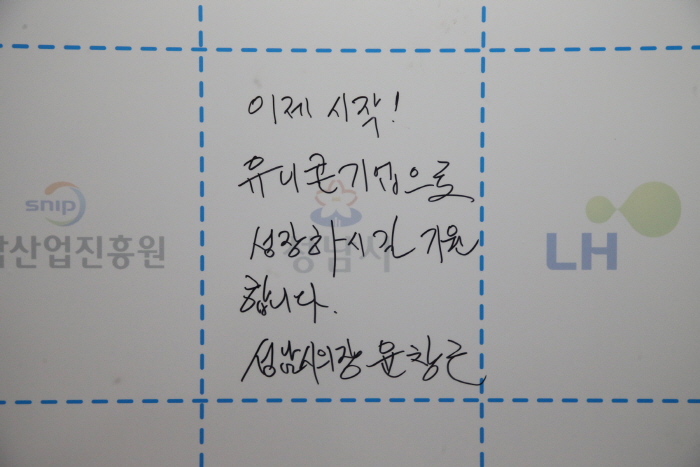 이제 시작!
유니콘기업으로
성장하시길 기원
합니다.
성남시의장 윤창근
snip
산업진흥원
성남시
LH